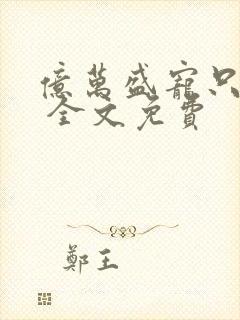 億萬盛寵只
全文免費
鄭王